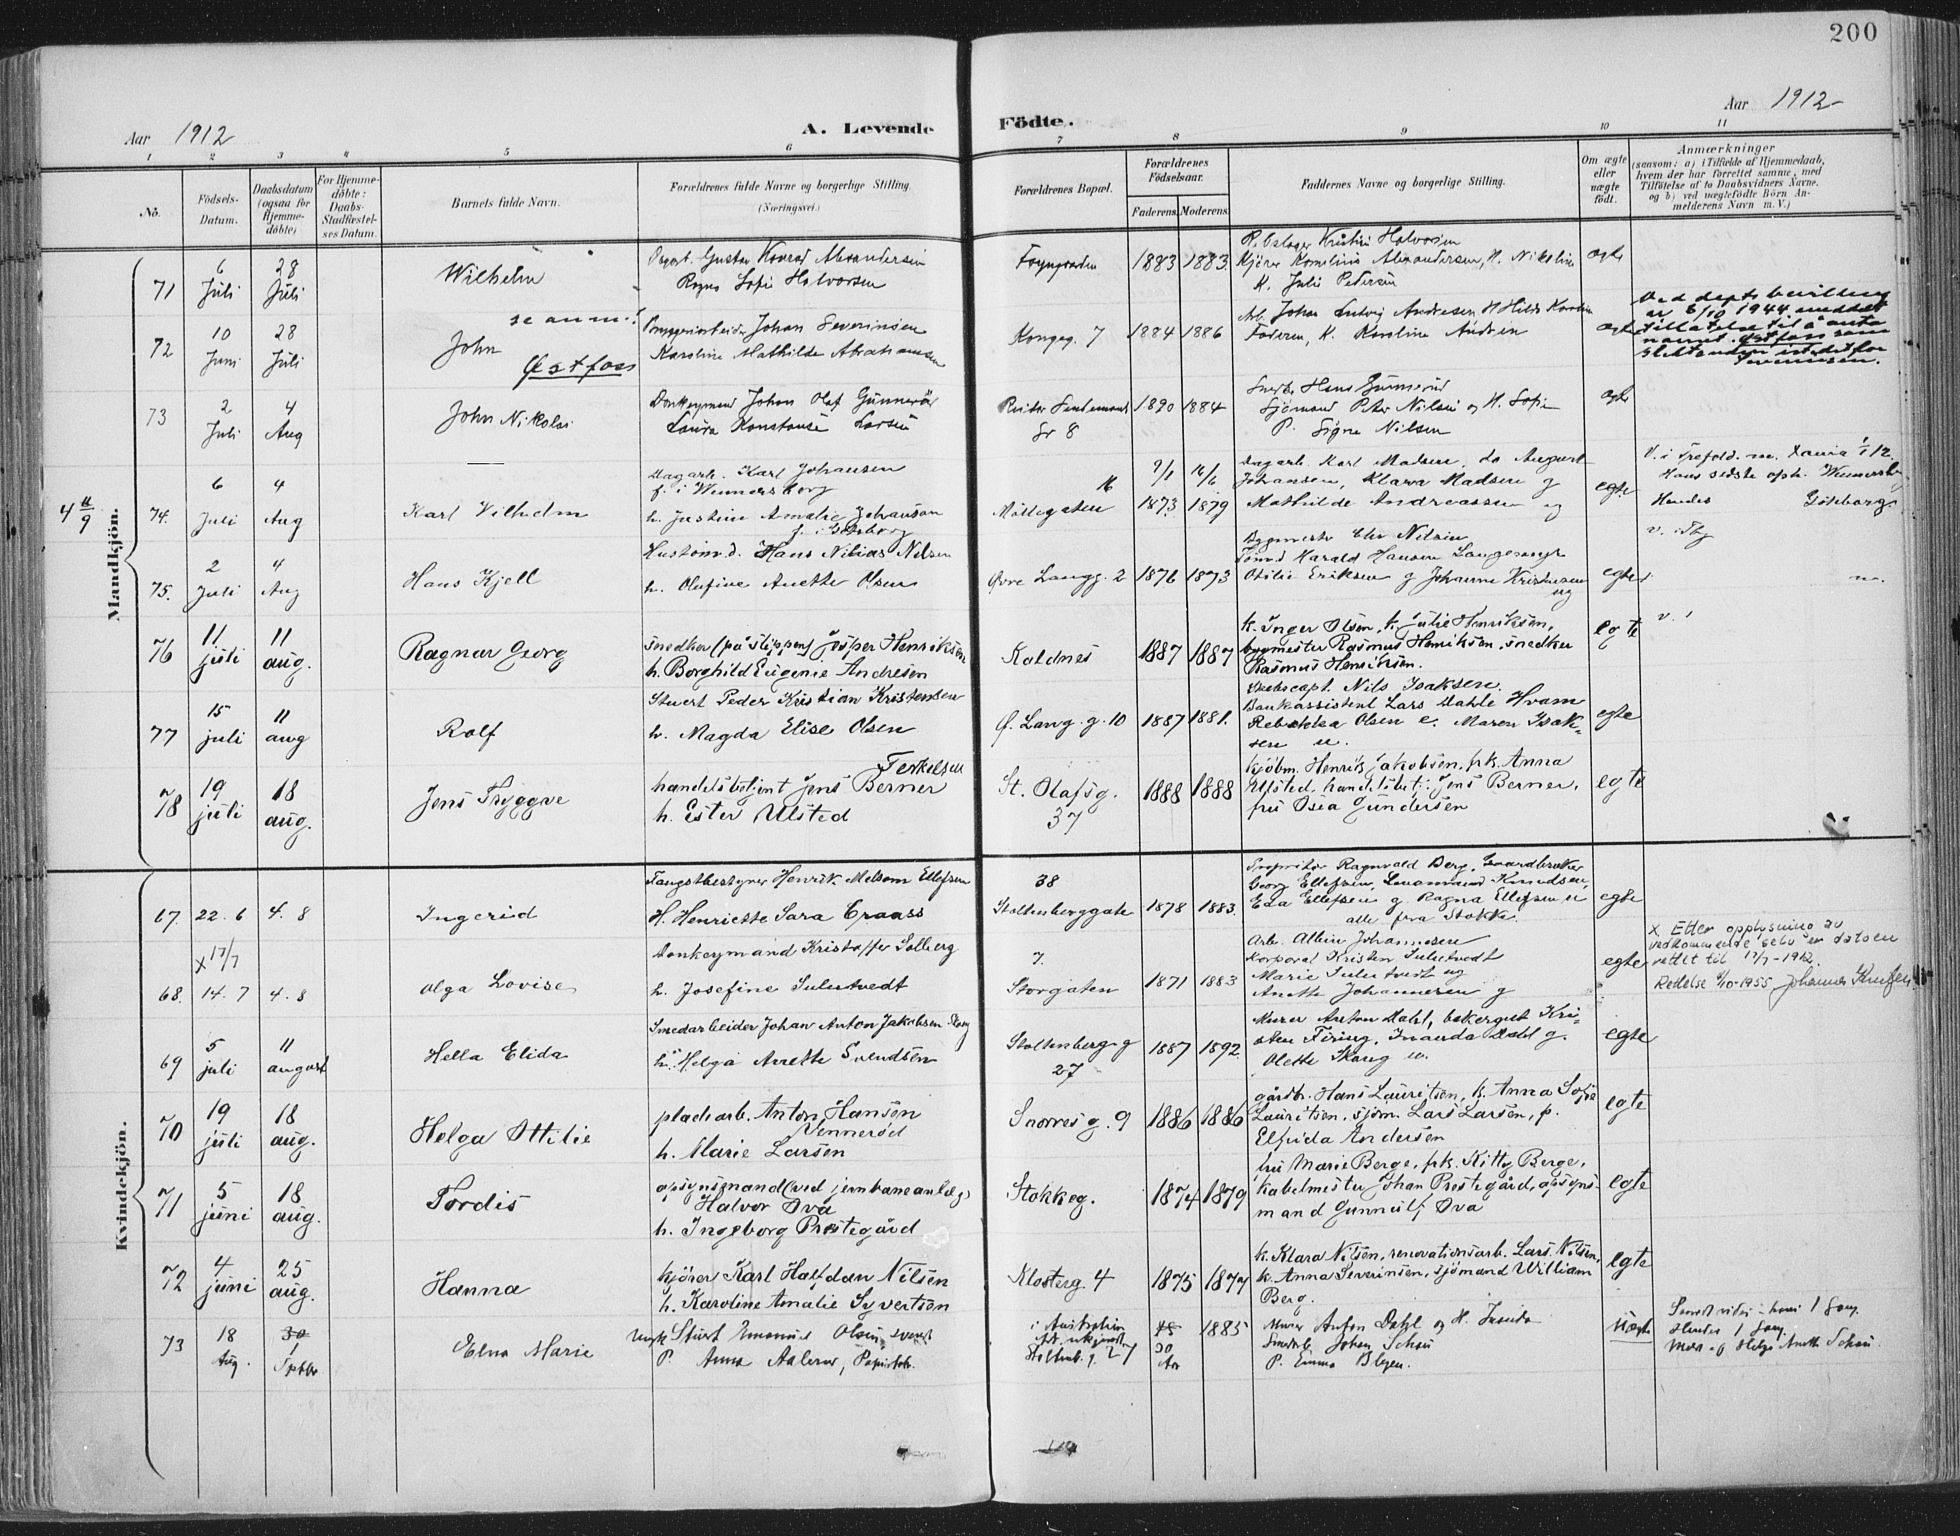 200
Aar 1912
A. Levende Födte.
Aar 1912
1 2 3 4 5 6 7 8 9 10 11
No.
Födsels-Datum.
Daabsdatum (ogsaa for Hjemme-döbte)
For Hjemme-döbte: Daabs-Stadfæstel-ses Datum.
Barnets fulde Navn.
Forældrenes fulde Navne og borgerlige Stilling. (Næringsvei.)
Forældrenes Bopæl.
Forældrenes Födselsaar.
Faderens. Moderens.
Faddernes Navne og borgerlige Stilling.
Om ægte eller uægte födt.
Anmærkninger
(saasom: a) i Tilfælde af Hjemmedaab,
hvem der har forrettet samme, med
Tilföielse af to Daabsvidners Navne.
og b) ved uægtefödte Börn An-
melderens Navn m. V.)
Mandkjön.
71 6 Juli 28 Juli Wilhelm
Gustav Konrad Alexandersen
Ragna Sofie Halvorsen
1883 1883
Kristine Halvorsen
Kjörer Kornelius Alexandersen, H. Nikoline
K. Julie Petersen
egte
72 10 Juni 28 Juli John
se anm.
Østfoss
Bryggeriarbeider Johan Severinsen
Karoline Mathilde Abrahamsen
Kongeg. 7 1884 1886
Arb. Johan Ludvig Andresen H Hilda Karoline
Faderen, K. Karoline Andresen
egte
Ved depts bevilling
av 6/10 1944 meddelt
tillatelse til å anta
navnet Østfoss som
slektsnavn istedetfor
Severinsen.
73 2 Juli 4 Aug John Nikolai
Donkeymand Johan Olaf Gunneröd
Laura Konstanse Larsen
1890 1884
Snedker Hans Gunneröd
Sjömand Peter Nilsen og H. Sofie
P. Signe Nilsen
egte
4 11/9
74. 6 Juli 4 Aug Karl Vilhelm
Dagarb. Karl Johansen
f. i Wennersborg
h. Justine Amalie Johanson
f. i Göteborg
16 Möllegaten
9/1 1873 16/6 1879
Dagarb. Karl Madsen, do August
Johansen, Klara Madsen g
Mathilde Andreassen ug
egte
V. i Trefold. m. Xania 1/1 12.
Hans sidste oph. Wennersborg
Hendes Göteborg.
75. 2 Juli 4 Aug Hans Kjell
Hustömd. Hans Nilias Nilsen
h. Olufine Anette Olsen
Øvre Langg. 2 1876 1873
Bygmester Elv Nilsen
Tömd Harald Hansen Langesengr
Otilie Eriksen g Johanne Kristensen
ug
egte
v. i Tbg
76 11 juli 11 aug. Ragnar Georg
snedker (på slippen) Jesper Henriksen
h. Borghild Eugenie Andresen
Kaldnes 1887 1887
k. Inger Olsen, k. Julie Henriksen,
bygmester Rasmus Henriksen, snedker
Rasmus Henriksen.
egte
77 15 juli 11 aug Rolf
Stuert Peder Kristian Kristensen
h. Magda Elise Olsen
Ø. Lang. g. 10 1887 1881.
Skibscapt. Nils Isaksen.
Bankassistent Lars Dahle Hvam
Rebekka Olsen e. Maren Isak-
sen u.
egte
78 19 juli 18 aug. Jens Tryggve
handelsbetjent Jens Berner Terkelsen
h. Ester Ulsted
St. Olafsg. 37 1888 1888
kjöbm. Henrik Jakobsen, frk. Anna
Ulsted, handelsbetj. Jens Berner,
fru Osea Gundersen
egte
Kvindekjön.
67. 22.6 4.8 Ingerid
Fangstbestyrer Henrik Melsom Ellefsen
H. Henriette Sara Graass
38 Stoltenberggate 1878 1883.
Proprietær Ragnvald Berg, Gaardbruker
Georg Ellefsen, Lensmand Knudsen,
Eda Ellefsen g Ragna Ellefsen u
alle fra Stokke.
egte
68. x 17/7 14.7 4.8 Olga Lovise
Donkeymand Kristoffer Solberg
h. Josefine Sulutvedt
7. Storgaten 1871 1883
Arb. Albin Johannesen
Korporal Kristen Sulutvedt
Marie Sulutvedt ug
Anette Johannesen g
egte
X. Etter opplysning av
vedkommende selv er datoen
rettet til 17/7-1912.
69 5 juli 11 august Hella Elida
Smedarbeider Johan Anton Jakobsen Skaug
h. Helga Anette Svendsen
Stoltenberg. g 27 1887 1892.
Murer Anton Dahl, bakergut Kri-
sten Firing, Inanda Dahl g.
Olette Skaug u.
egte
70 19 juli 18 aug. Helga Ottilie
pladsarb. Anton Hansen
Vennerød
h. Marie Larsen
Snorres g. 9 1886 1886
gårdbr. Hans Lauritsen, k. Anna Sofie
Lauritsen, sjöm. Lars Larsen, p.
Elfrida Andersen
egte
71 5 juni 18 aug. Tordis
opsynsmand (ved jernbaneanlæg)
Halvor Ova
h. Ingeborg Prestegård
Stokkeg. 1874 1879
fru Marie Berge, frk. Kitty Berge,
kabelmester Johan Prestegård, opsyns-
mand Gunnulf Ova
egte
72 4 juni 25 aug. Hanna
kjörer Karl Halfdan Nilsen
h. Karoline Amalie Syvertsen
Klosterg. 4 1875 1877
k. Klara Nilsen, renovationsarb. Lars Nilsen,
k. Anna Severinsen, sjömand William
Berg.
egte
73 18 Aug. 30 1 Septbr Elna Marie
Ungk Stuert Emanuel Olsen, svensk
P. Anna
i Australien
Stoltenb. g. 27
45 30 Aar 1885
Murer Anton Dahl og H. Inanda
Smedarb. Johan Schau
P. Emma
Uegte
Hendes 1 Gang